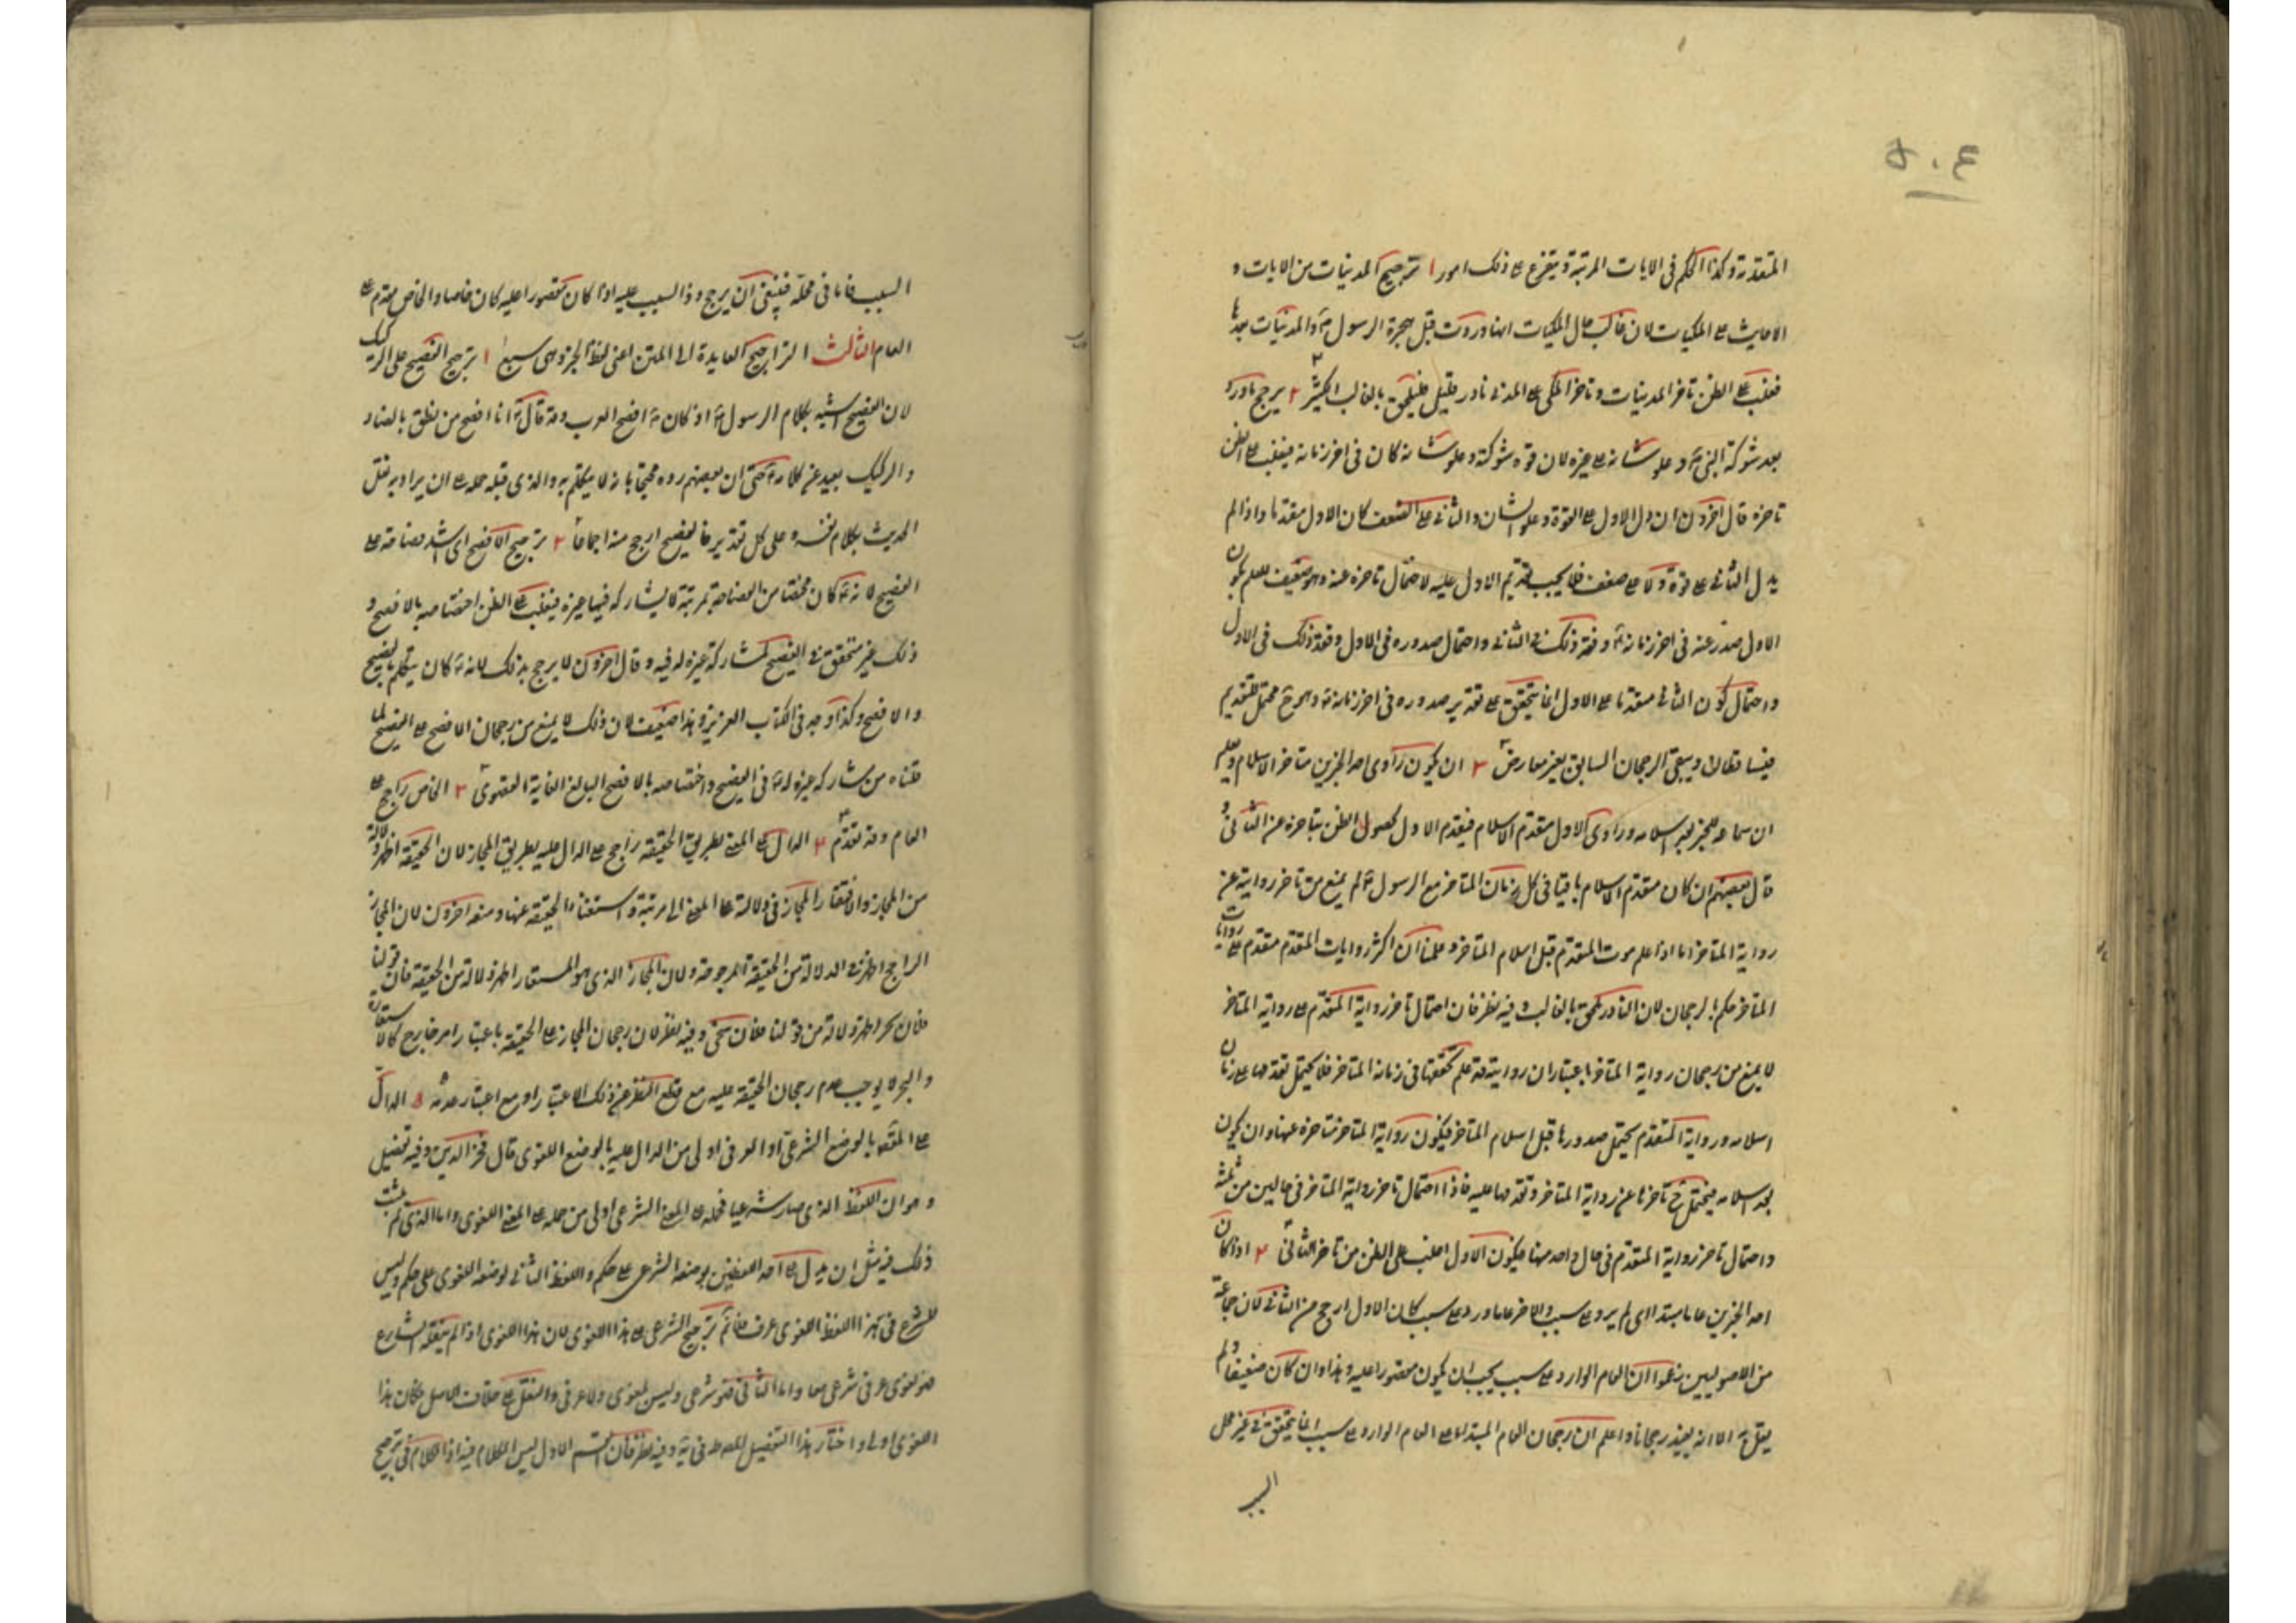 ٥٠٤
المتقدمة وكذا الحكم في الايات المرتبة ويتفرع على ذلك امور ا ترجيح المدنيات من الايات و
الاحاديث على المكيات لان غالب حال المكيات انها وردت قبل هجرة الرسول ع والمدنيات بعدها
فغلب على الظن تاخر المدنيات وتاخر المكي على المدني نادر قليل فليلحق بالغالب الكثير ٢ يرجح ما ورد
بعد شوكة النبي ع وعلو شانه على غيره لان قوة شوكته وعلو شانه كان في اخر زمانه فيغلب على الظن
تاخره قال اخرون ان دل الاول على القوة وعلو الشان والثاني على الضعف كان الاول مقدما واذا لم
يدل الثاني على قوة ولا على ضعف فلا يجب تقديم الاول عليه لاحتمال تاخره عنه وهو ضعيف للعلم بكون
الاول صدر عنه في اخر زمانه ع وفقد ذلك في الثاني واحتمال صدوره في الاول وفقد ذلك في الاول
واحتمال كون الثاني مقدما على الاول انما يتحقق على تقدير صدوره في اخر زمانه ع وهو ح محتمل للتقديم
فيتساقطان ويبقى الرجحان السابق بغير معارض ٣ ان يكون راوي احد الخبرين متاخر الاسلام ويعلم
ان سماعه للخبر بعد اسلامه وراوي الاول متقدم الاسلام فيقدم الاول لحصول الظن بتاخره عن الثاني و
قال بعضهم ان كان متقدم الاسلام باقيا في كل زمان المتاخر مع الرسول ع لم يمنع من تاخر روايته عن
رواية المتاخر اما اذا علم موت المتقدم قبل اسلام المتاخر وعلمنا ان اكثر روايات المتقدم متقدم على روايات
المتاخر حكم بالرجحان لان النادر ملحق بالغالب وفيه نظر فان احتمال تاخر رواية المتقدم على رواية المتاخر
لا يمنع من رجحان رواية المتاخر باعتبار ان روايته قد علم تحققها في زمانه المتاخر فلا يحتمل تقدمها على زمان
اسلامه ورواية المتقدم يحتمل صدورها قبل اسلام المتاخر فيكون رواية المتاخر متاخرة عنها وان يكون
بعد اسلامه فيحتمل ح تاخرها عن رواية المتاخر وتقدمها عليه فاذا احتمال تاخر رواية المتاخر في حالين من ثلثة
واحتمال تاخر رواية المتقدم في حال واحد منها فيكون الاول اغلب على الظن من تاخر الثاني ٤ اذا كان
احد الخبرين عاما مبتداء اي لم يرد على سبب والاخر عاما ورد على سبب كان الاول ارجح من الثاني لان جماعة
من الاصوليين زعموا ان العام الوارد على سبب يجب ان يكون مقصورا عليه وهذا وان كان ضعيفا ولم
يقل به الا انه يفيد رجحانا واعلم ان رجحان العام المبتدا على العام الوارد على سبب انما يتحقق في غير محل
السبب
السبب فاما في محله فينبغي ان يرجح ذو السبب عليه اذ كان مقصورا عليه كان خاصا والخاص مقدم على
العام الثالث التراجيح العايدة الى المتن اعني لفظ الخبر وهى سبع ا ترجيح الفصيح على الركيك
لان الفصيح اشبه بكلام الرسول ع اذ كان ع افصح العرب وقد قال ع انا افصح من نطق بالضاد
والركيك بعيد عن كلامه ع حتى ان بعضهم رده محتجا بانه لا يتكلم به والذي قبله حمله على ان يراد به نقل
الحديث بكلام نفسه وعلى كل تقدير فالفصيح ارجح منه اجماعا ٢ ترجيح الافصح اي اشد فصاحة على
الفصيح لانه ع كان مختصا من الفصاحة بمرتبة لا يشاركه فيها غيره فيغلب على الظن اختصاصه بالافصح و
ذلك غير متحقق في الفصيح لمشاركة غيره له فيه وقال اخرون لا يرجح بذلك لانه ع كان يتكلم بالفصيح
والافصح وكذا وجد في الكتاب العزيز وهذا ضعيف لان ذلك لا يمنع من رجحان الافصح على الفصيح لما
قلناه من مشاركة غيره له ع في الفصيح واختصاصه بالافصح البالغ الغاية القصوى ٣ الخاص راجح على
العام وقد تقدم ٤ الدال على المعنى بطريق الحقيقة راجح على الدال عليه بطريق المجاز لان الحقيقة اظهر دلالة
من المجاز ولافتقار المجاز في دلالته على المعنى الى مرتبة واستغناء الحقيقة عنها ومنعه اخرون لان المجاز
الراجح اظهر في الدلالة من الحقيقة المرجوحة ولان المجاز الذي هو المستعار اظهر دلالة من الحقيقة فان قولنا
فلان بحر اظهر دلالة من قولنا فلان سخي وفيه نظر لان رجحان المجاز على الحقيقة باعتبار امر خارج كالاستعارة
والشهرة لا يوجب عدم رجحان الحقيقة عليه مع قطع النظر عن ذلك الاعتبار او مع اعتبار عدمه ٥ الدال
على المقصود بالوضع الشرعي او العرفي اولى من الدال عليه بالوضع اللغوي قال فخر الدين وفيه تفصيل
وهو ان اللفظ الذي صار شرعيا فحمله على المعنى الشرعي اولى من حمله على المعنى اللغوي واما الذي لم يثبت
ذلك فيه مثل ان يدل على احد اللفظين بوضعه الشرعي على حكم واللفظ الثاني بوضعه اللغوي على حكم وليس
للشرع في هذا اللفظ اللغوي عرف فلا نم ترجيح الشرعي على هذا اللغوي لان هذا اللغوي اذا لم ينقله الشارع
فهو لغوي عرفي شرعي معا واما الثاني فهو شرعي وليس لغوي ولا عرفي والنقل على خلاف الاصل فكان هذا
اللغوي اولى واختار هذا التفصيل المصنف في يه وفيه نظر فان القسم الاول ليس الكلام فيه اذ الكلام في ترجيح